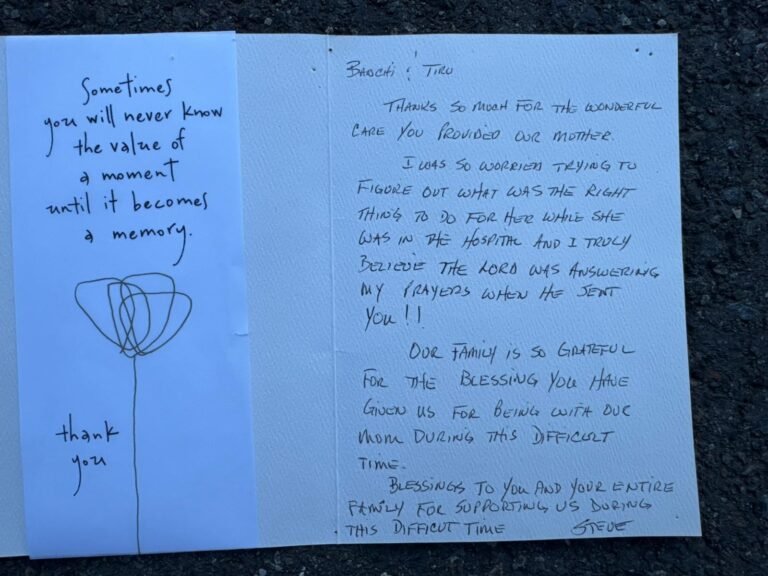 Sometimes
you will never know
the value of
a moment
until it becomes
a memory.
thank
you
& Tiru
Thanks so much for the wonderful
care you provided our mother.
I was so worried trying to
figure out what was the right
thing to do for her while she
was in the hospital and I truly
believe the Lord was answering
my prayers when he sent
you!!
Our family is so grateful
for the blessing you have
given us for being with our
mom during this difficult
time.
Blessings to you and your entire
family for supporting us during
this difficut time Steve